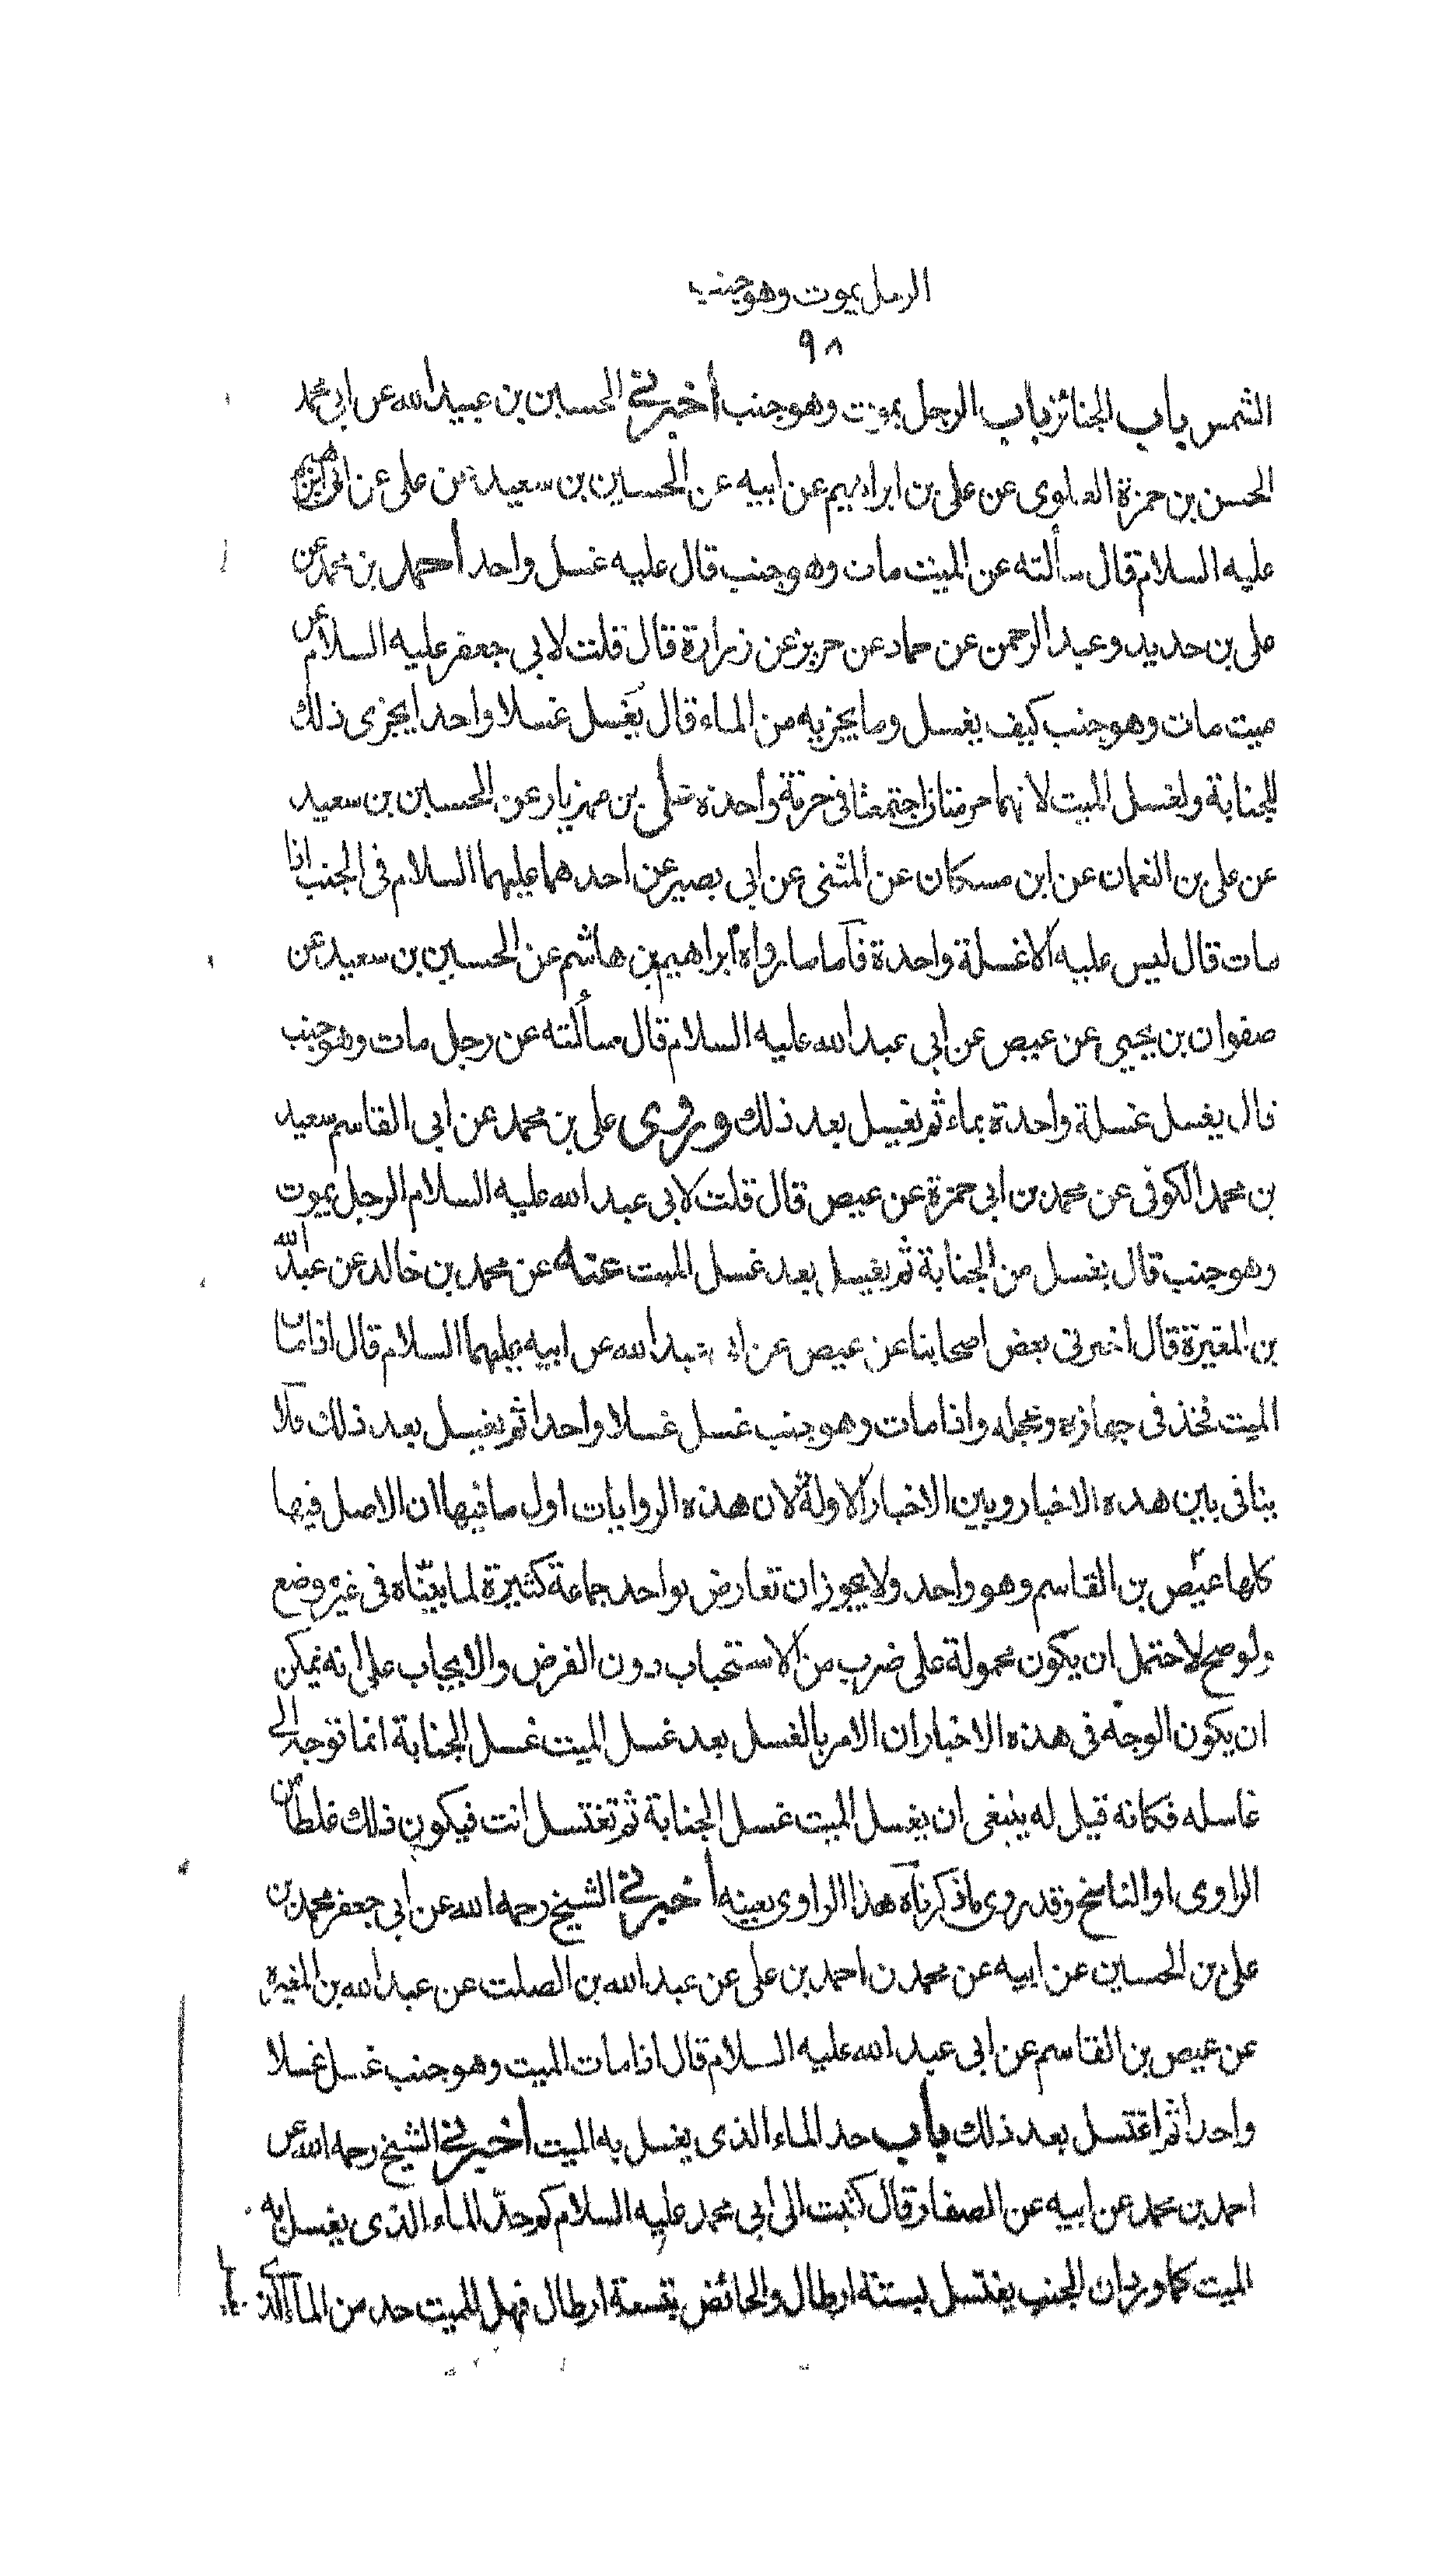 الرجل يموت وهو جنب
٩٨
الشمس باب الجنائز باب الرجل يموت وهو جنب أخبرني الحسين بن عبيد الله عن ابي محمد
الحسن بن حمزة العلوي عن علي بن ابراهيم عن ابيه عن الحسين بن سعيد عن علي عن ابي ابرهيم
عليه السلام قال سألته عن الميت مات وهو جنب قال عليه غسل واحد أحمد بن محمد عن
علي بن حديد وعبد الرحمن عن حماد عن حريز عن زرارة قال قلت لابي جعفر عليه السلام عن
ميت مات وهو جنب كيف يغسل وما يجزيه من الماء قال يغسل غسلا واحدا يجزى ذلك
للجنابة ولغسل الميت لانهما حرمتان اجتمعتا في حرمة واحدة علي بن مهزيار عن الحسين بن سعيد
عن علي بن النعمان عن ابن مسكان عن المثنى عن ابي بصير عن احدهما عليهما السلام في الجنب اذا
مات قال ليس عليه الا غسلة واحدة فأما ما رواه ابراهيم بن هاشم عن الحسين بن سعيد عن
صفوان بن يحيى عن عيص عن ابي عبد الله عليه السلام قال سألته عن رجل مات وهو جنب
قال يغسل غسلة واحدة بماء ثم يغسل بعد ذلك وروى علي بن محمد عن ابي القاسم سعيد
بن محمد الكوفي عن محمد بن ابي حمزة عن عيص قال قلت لابي عبد الله عليه السلام الرجل يموت
وهو جنب قال يغسل من الجنابة ثم يغسل بعد غسل الميت عنه عن محمد بن خالد عن عبد الله
بن المغيرة قال اخبرني بعض اصحابنا عن عيص عن ابي عبد الله عن ابيه عليهما السلام قال اذا مات
الميت فخذ في جهازه وعجله واذا مات وهو جنب غسل غسلا واحدا ثم يغسل بعد ذلك فلا
ينافي بين هذه الاخبار وبين الاخبار الاولة لان هذه الروايات اول ما فيها ان الاصل فيها
كلها عيص بن القاسم وهو واحد ولا يجوز ان تعارض بواحد جماعة كثيرة لما بيناه في غير موضع
ولو صح لاحتمل ان يكون محمولة على ضرب من الاستحباب دون الفرض والايجاب على انه يمكن
ان يكون الوجه في هذه الاخبار ان الامر بالغسل بعد غسل الميت غسل الجنابة انما توجه الى
غاسله فكانه قيل له ينبغي ان يغسل الميت غسل الجنابة ثم تغتسل انت فيكون ذلك غلطا من
الراوي او الناسخ وقد روى ما ذكرناه هذا الراوي بعينه أخبرني الشيخ رحمه الله عن ابي جعفر محمد بن
علي بن الحسين عن ابيه عن محمد بن احمد بن علي عن عبد الله بن الصلت عن عبد الله بن المغيرة
عن عيص بن القاسم عن ابي عبد الله عليه السلام قال اذا مات الميت وهو جنب غسل غسلا
واحدا ثم اغتسل بعد ذلك باب حد الماء الذي يغسل به الميت أخبرني الشيخ رحمه الله عن
احمد بن محمد عن ابيه عن الصفار قال كتبت الى ابي محمد عليه السلام كم حد الماء الذي يغسل به
الميت كما رووا ان الجنب يغتسل بستة ارطال والحائض بتسعة ارطال فهل للميت حد من الماء الذي